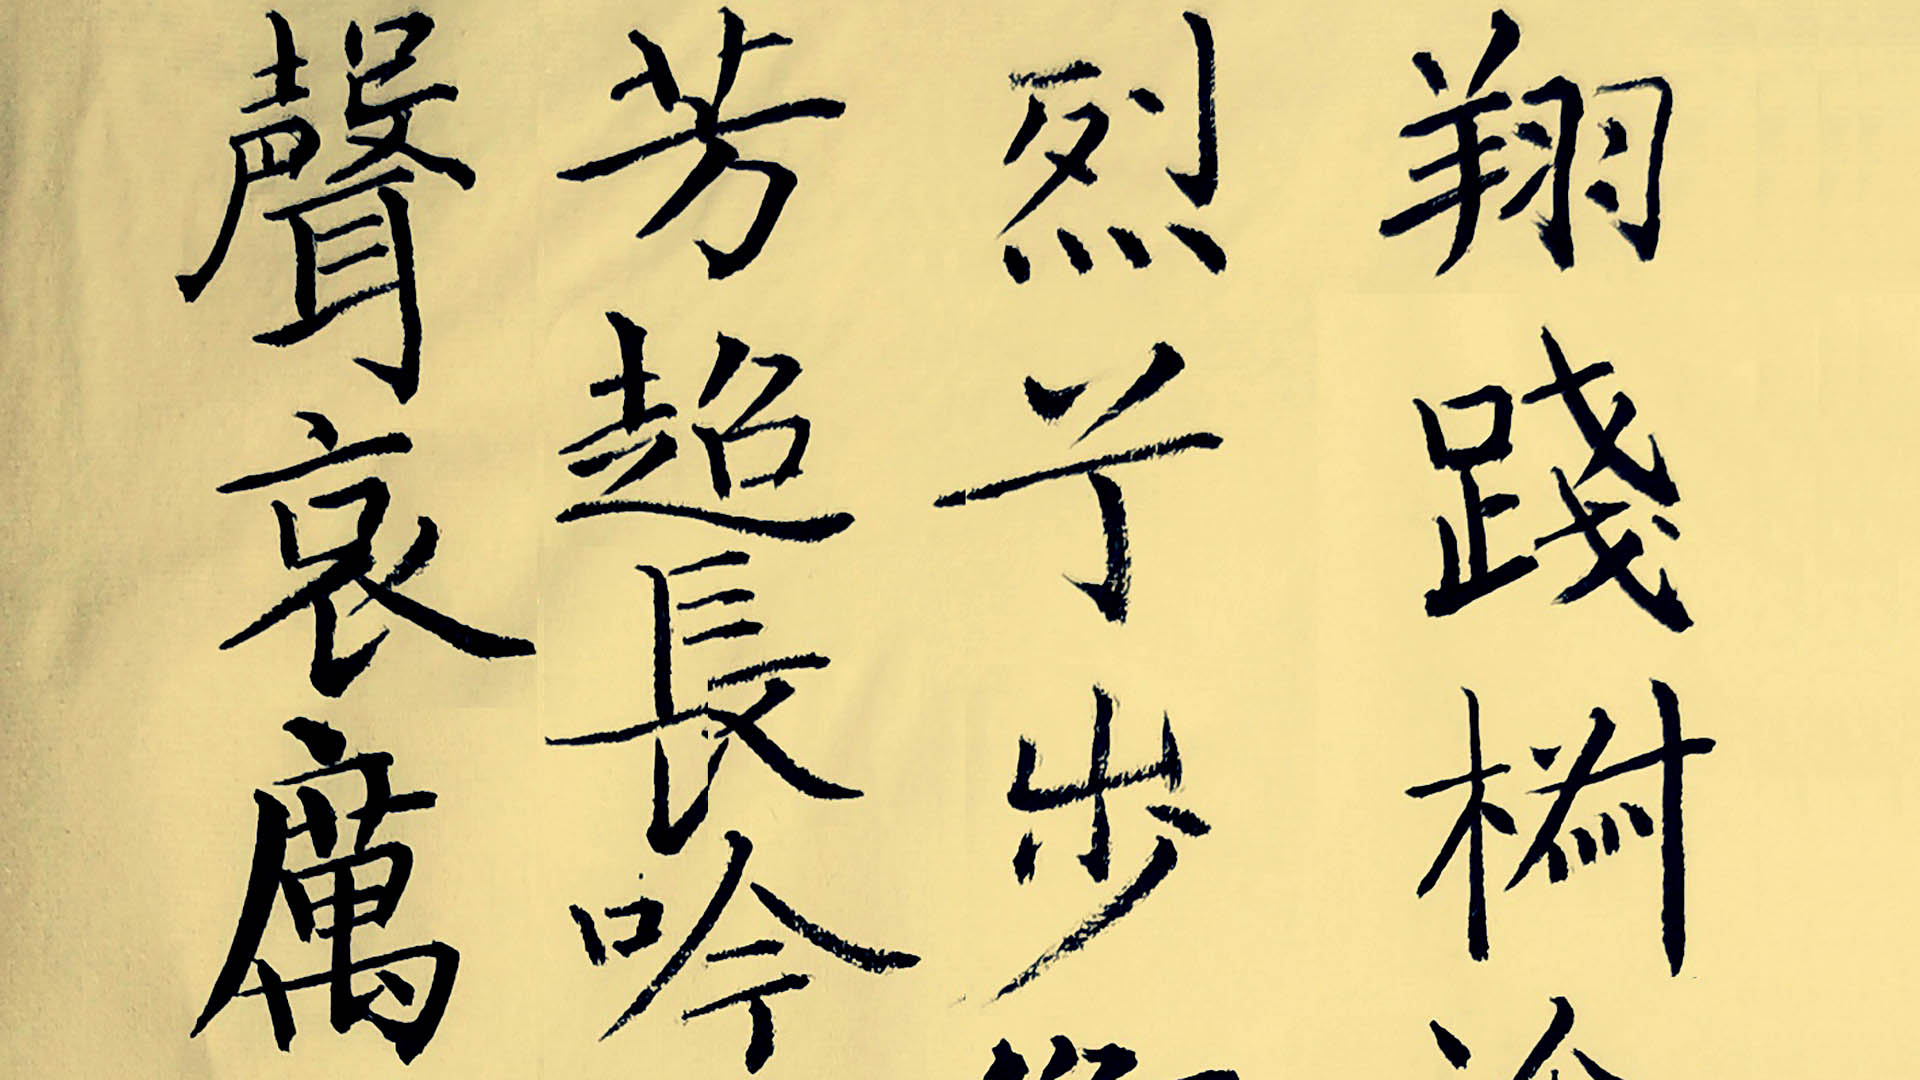 翔踐椒
烈兮步
芳超長吟
聲哀厲